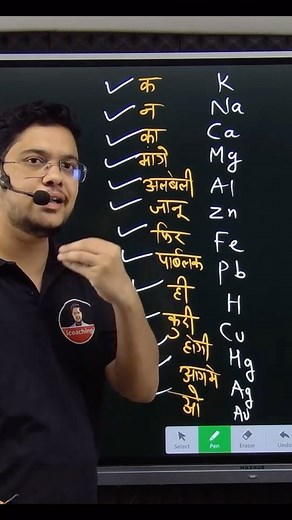 क K
न Na
का Ca
मांगे Mg
अलबेली Al
जानू Zn
फिर Fe
पाबलक Pb
ही H
कुदी Cu
होगी Hg
आगमे Ag
औ Au
coaching
Select Pen Eraser Undo